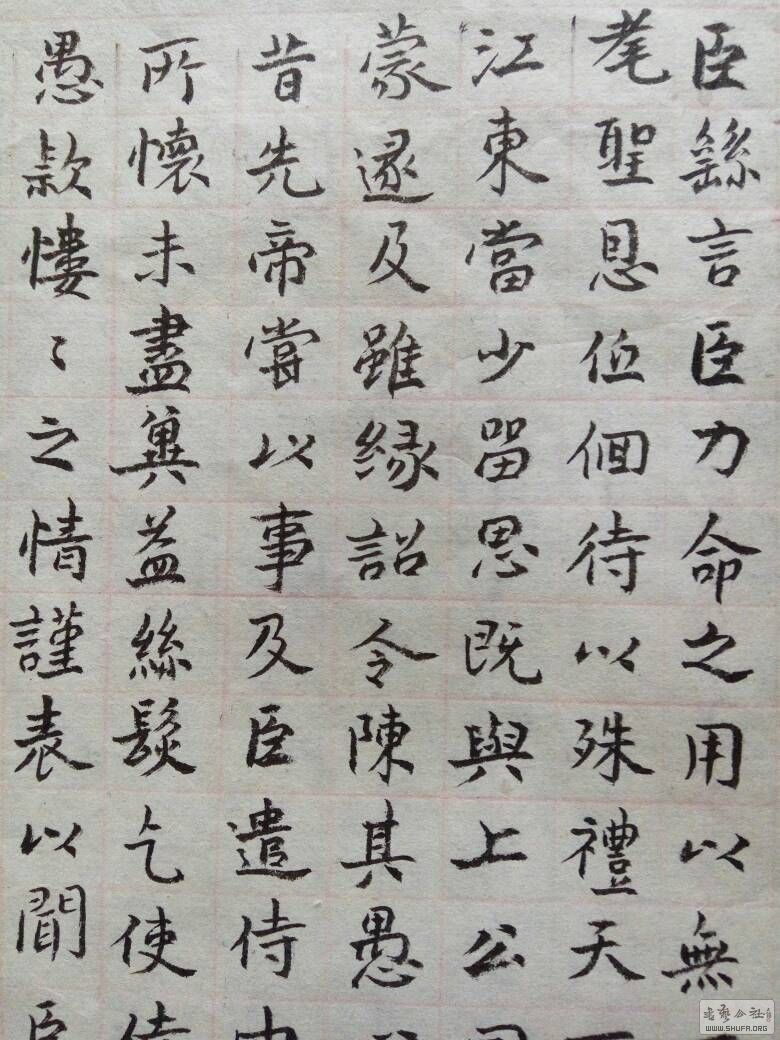 臣繇言臣力命之用以無
耄聖恩低佪待以殊禮天
江東當少留思既與上公
蒙遂及雖緣詔令陳其愚
昔先帝嘗以事及臣遣侍中
所懷未盡冀益絲髮乞使侍
愚款慺〻之情謹表以聞臣
WWW.SHUFA.ORG